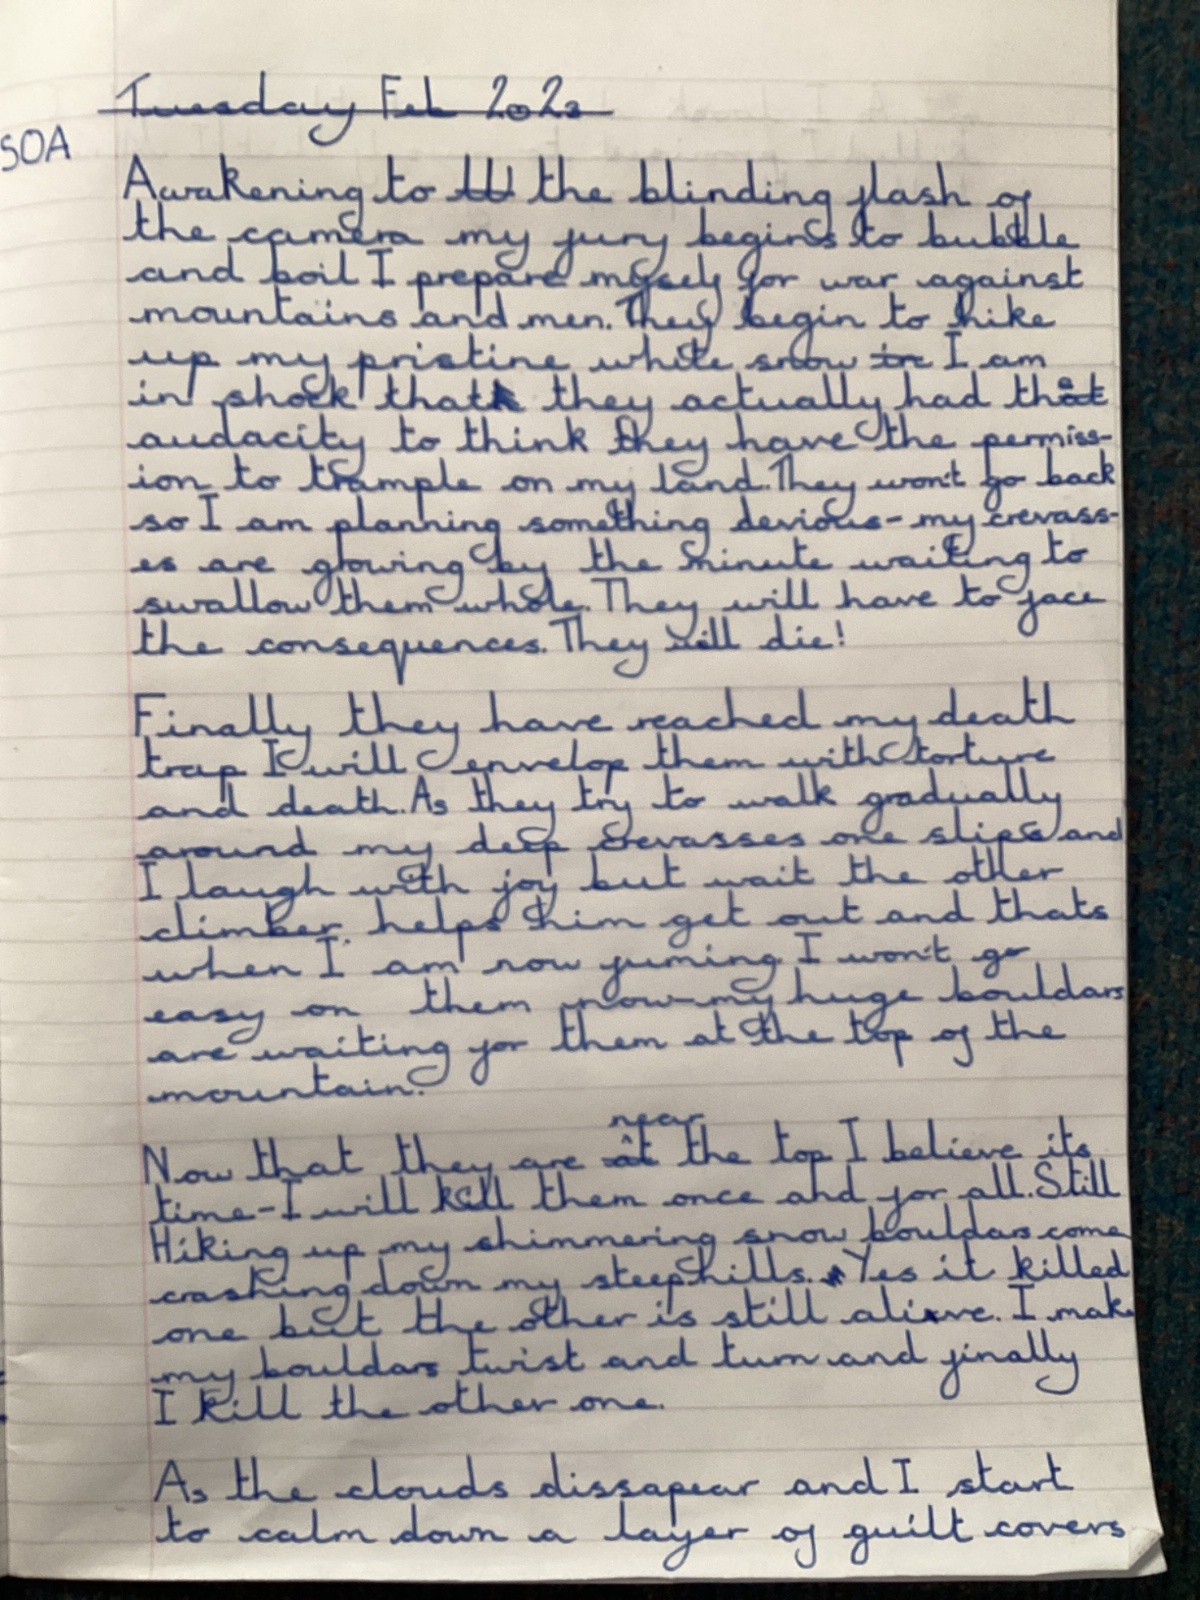 Tuesday Feb 2023
SOA
Awakening to the blinding flash of
the camera my fury begins to bubble
and boil I prepare myself for war against
mountains and men. They begin to hike
up my pristine white snow I am
in shock that they actually had that
audacity to think they have the permiss-
ion to trample on my land. They won't go back
so I am planning something devious - my crevass-
es are growing by the minute waiting to
swallow them whole. They will have to face
the consequences. They will die!
Finally they have reached my death
trap I will envelop them with torture
and death. As they try to walk gradually
around my deep crevasses one slips and
I laugh with joy but wait the other
climber helps him get out and thats
when I am now fuming I won't go
easy on them now-my huge bouldars
are waiting for them at the top of the
mountain.
Now that they are near the top I believe its
time-I will kill them once and for all. Still
Hiking up my shimmering snow bouldars come
crashing down my steep hills. Yes it killed
one but the other is still alive. I make
my bouldars twist and turn and finally
I kill the other one.
As the clouds dissapear and I start
to calm down a layer of guilt covers